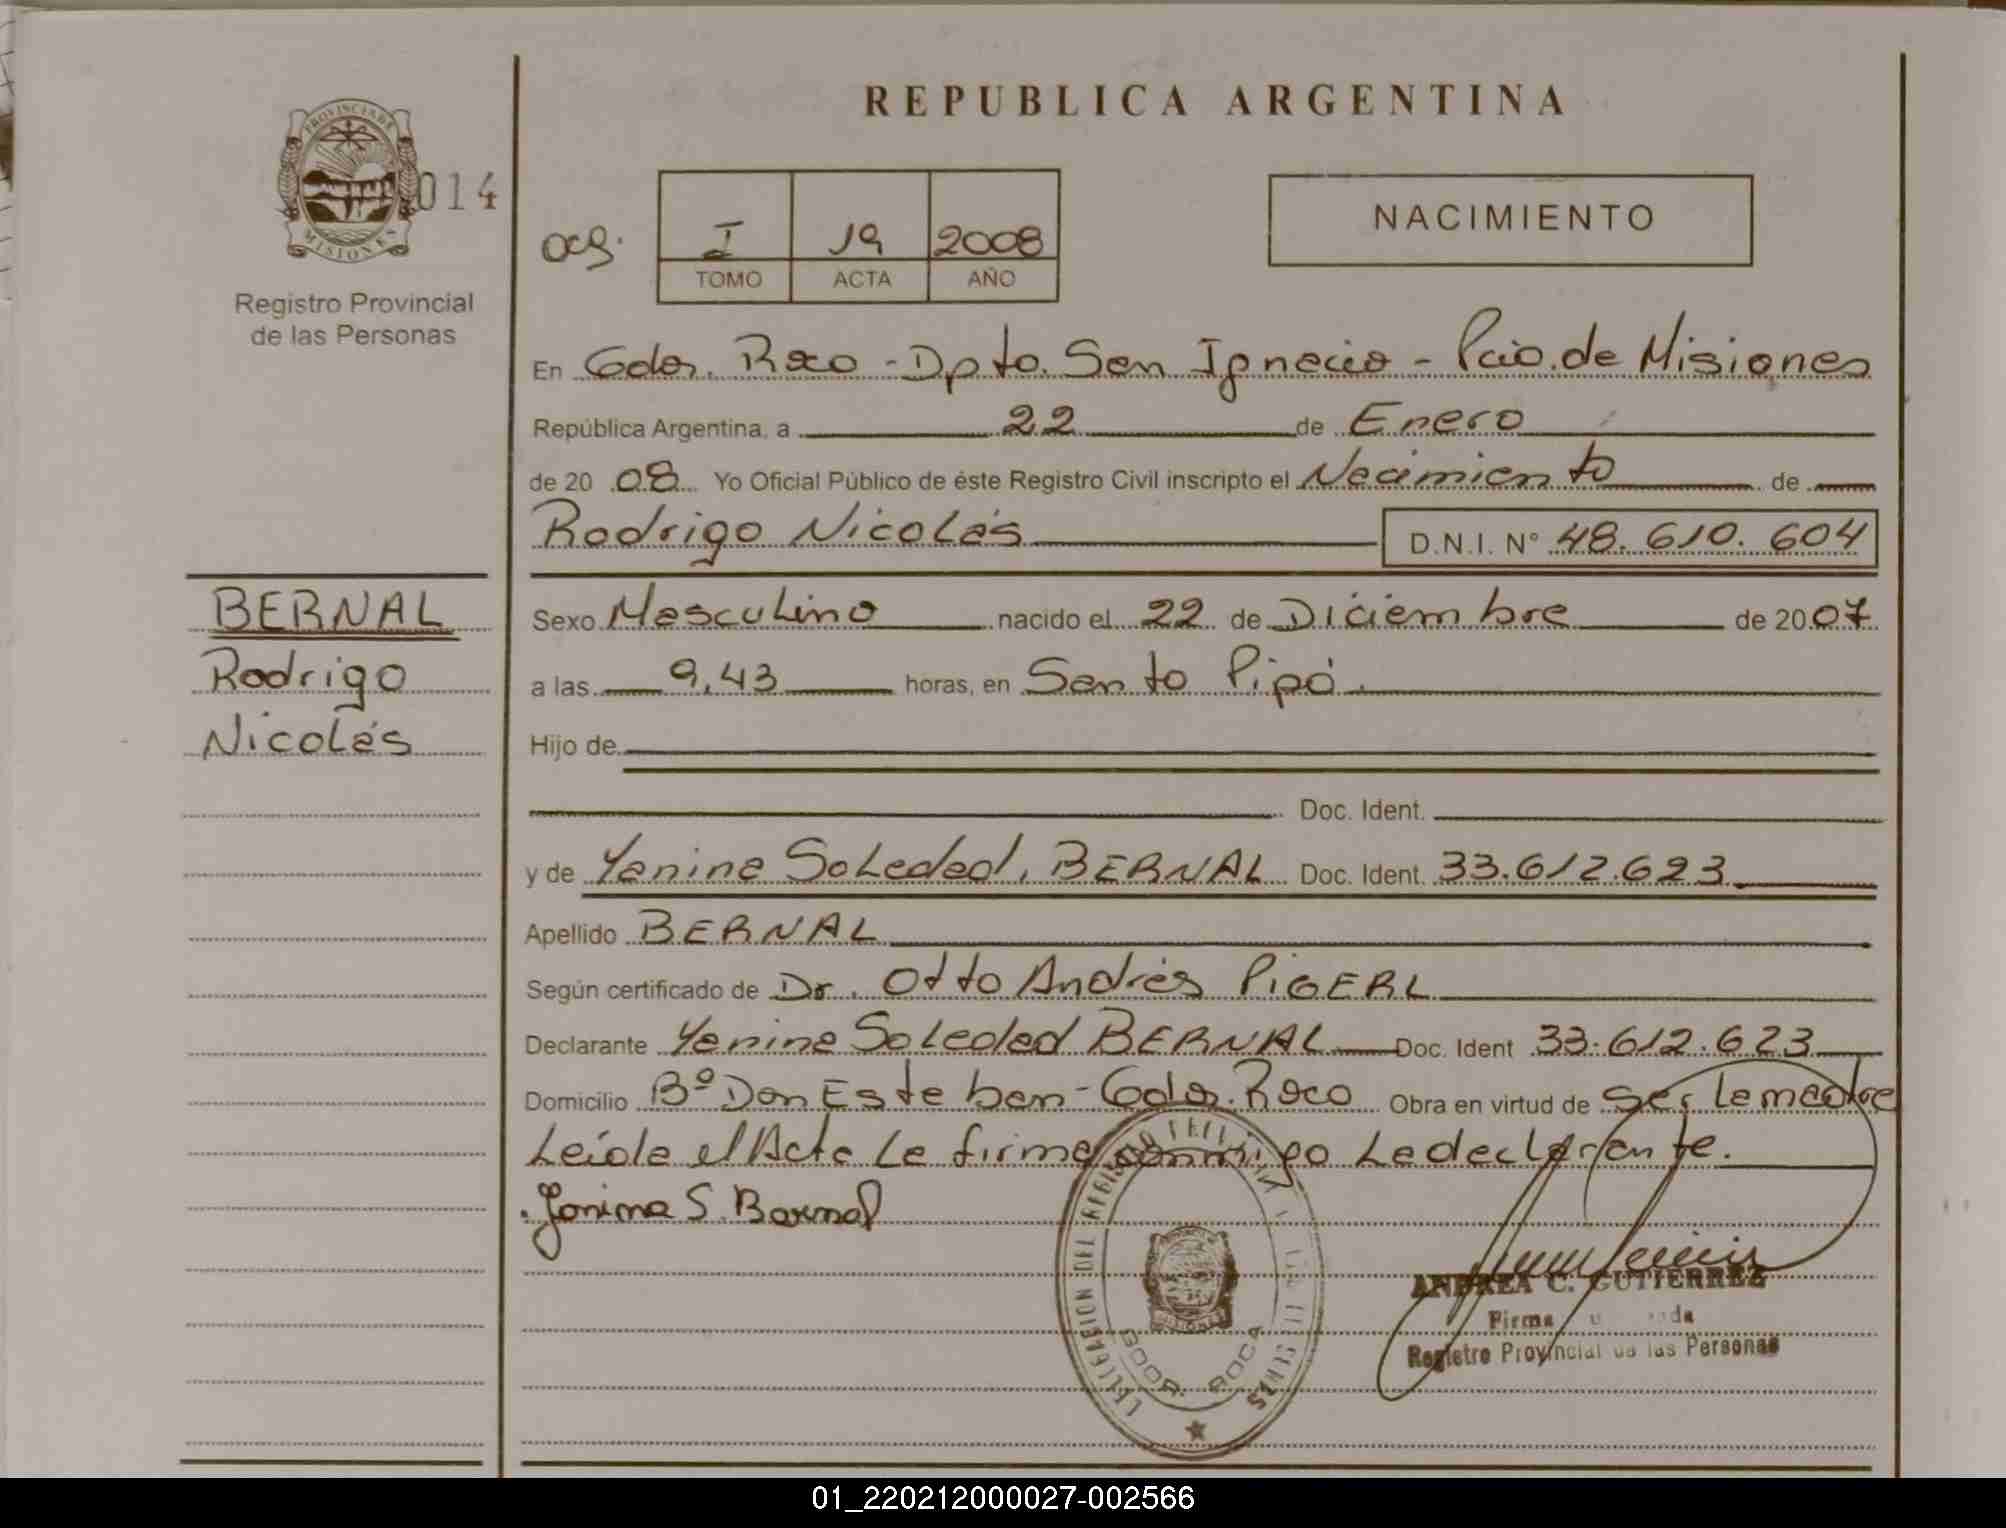 REPUBLICA ARGENTINA
PROVINCIA DE MISIONES
014
Registro Provincial
de las Personas
ocg.
I 19 2008
TOMO ACTA AÑO
NACIMIENTO
En Gdor. Roca - Dpto. San Ignacio - Pcio. de Misiones
República Argentina, a 22 de Enero
de 20 08 Yo Oficial Público de éste Registro Civil inscripto el Nacimiento de
Rodrigo Nicolás D.N.I. N° 48.610.604
BERNAL
Rodrigo
Nicolás
Sexo Masculino nacido el 22 de Diciembre de 20 07
a las 9,43 horas, en Santo Pipó.
Hijo de
Doc. Ident.
y de Yanina Soledad, BERNAL Doc. Ident. 33.612.623
Apellido BERNAL
Según certificado de Dr. Otto Andrés PIGERL
Declarante Yanina Soledad BERNAL Doc. Ident 33.612.623
Domicilio B° Don Esteban - Gdor. Roca Obra en virtud de ser la madre
Leída el Acta La firma conmigo La declarante.
Yanina S. Bernal
GDOR. ROCA
ANDREA C. GUTIERREZ
Firma
Registro Provincial de las Personas
01_220212000027-002566